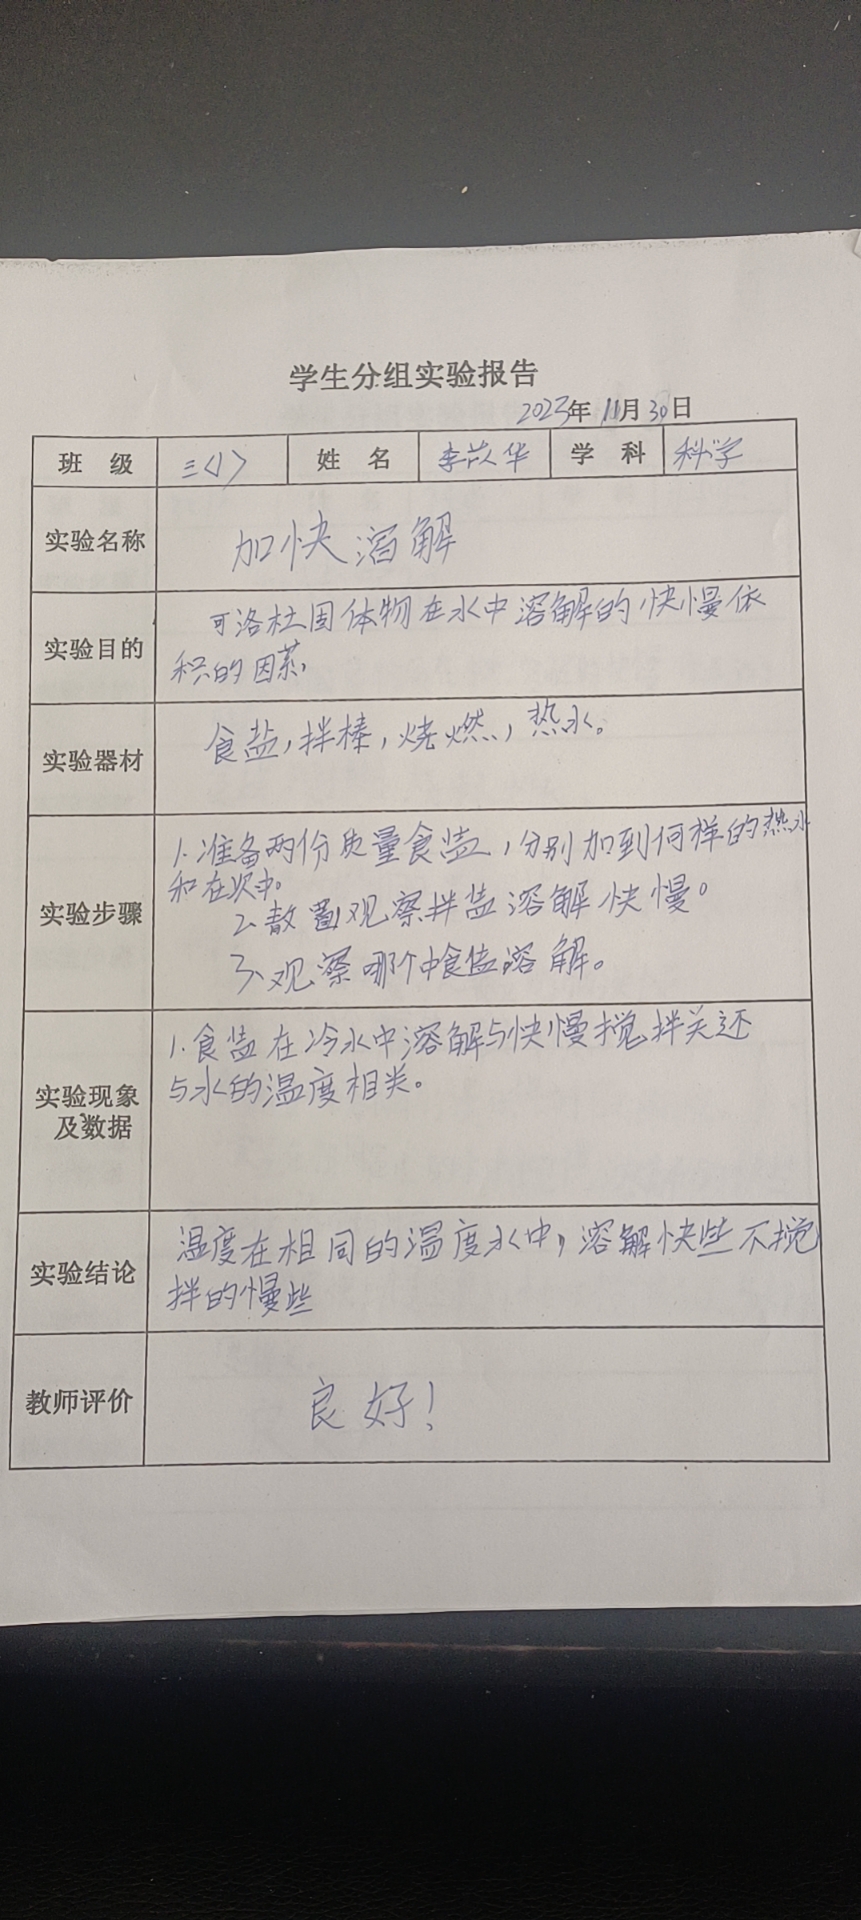 学生分组实验报告
2023年 11月 30日
班 级 三〈1〉 姓 名 李苡华 学 科 科学
实验名称 加快溶解
可洛杜固体物在水中溶解的快慢依
实验目的
积的因素,
实验器材 食盐,拌棒,烧燃,热水。
1.准备两份质量食盐,分别加到何样的热水
和在次中。
实验步骤 2.散置观察拌盐溶解快慢。
3.观察哪个中食盐溶解。
1.食盐在冷水中溶解与快慢搅拌关还
与水的温度相关。
实验现象
及数据
温度在相同的温度水中,溶解快些不搅
实验结论
拌的慢些
教师评价 良好!